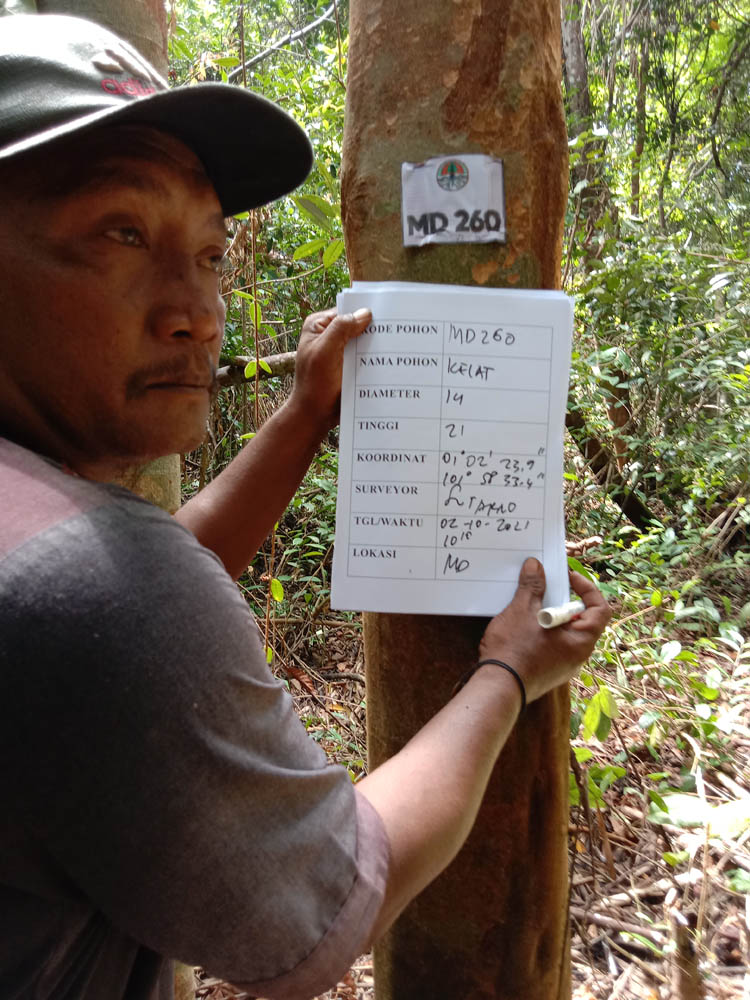 adidas
MD 260
KODE POHON MD260
NAMA POHON KELAT
DIAMETER 14
TINGGI 21
KOORDINAT 01° 02' 23,9"
101° 58' 33,4"
SURVEYOR SUTARNO
TGL/WAKTU 02-10-2021
10 15
LOKASI MD